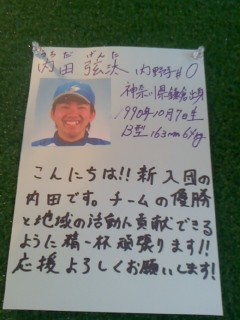 うちだ げんた
内田 弦汰 内野手 #0
神奈川県鎌倉出身
1990年10月7日生
B型 163cm 64kg
こんにちは!! 新入団の
内田です。チームの優勝
と地域の活動へ貢献できる
ように精一杯頑張ります!!
応援よろしくお願いします!